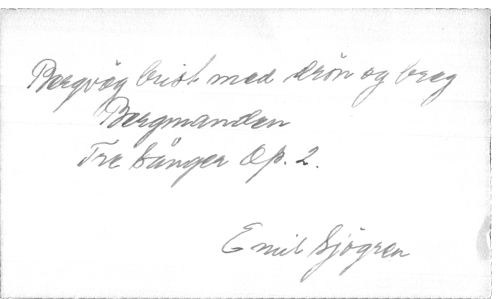 Bergväg brist med drön og brag
Bergmanden
Tre Sånger Op. 2.
Emil Sjögren